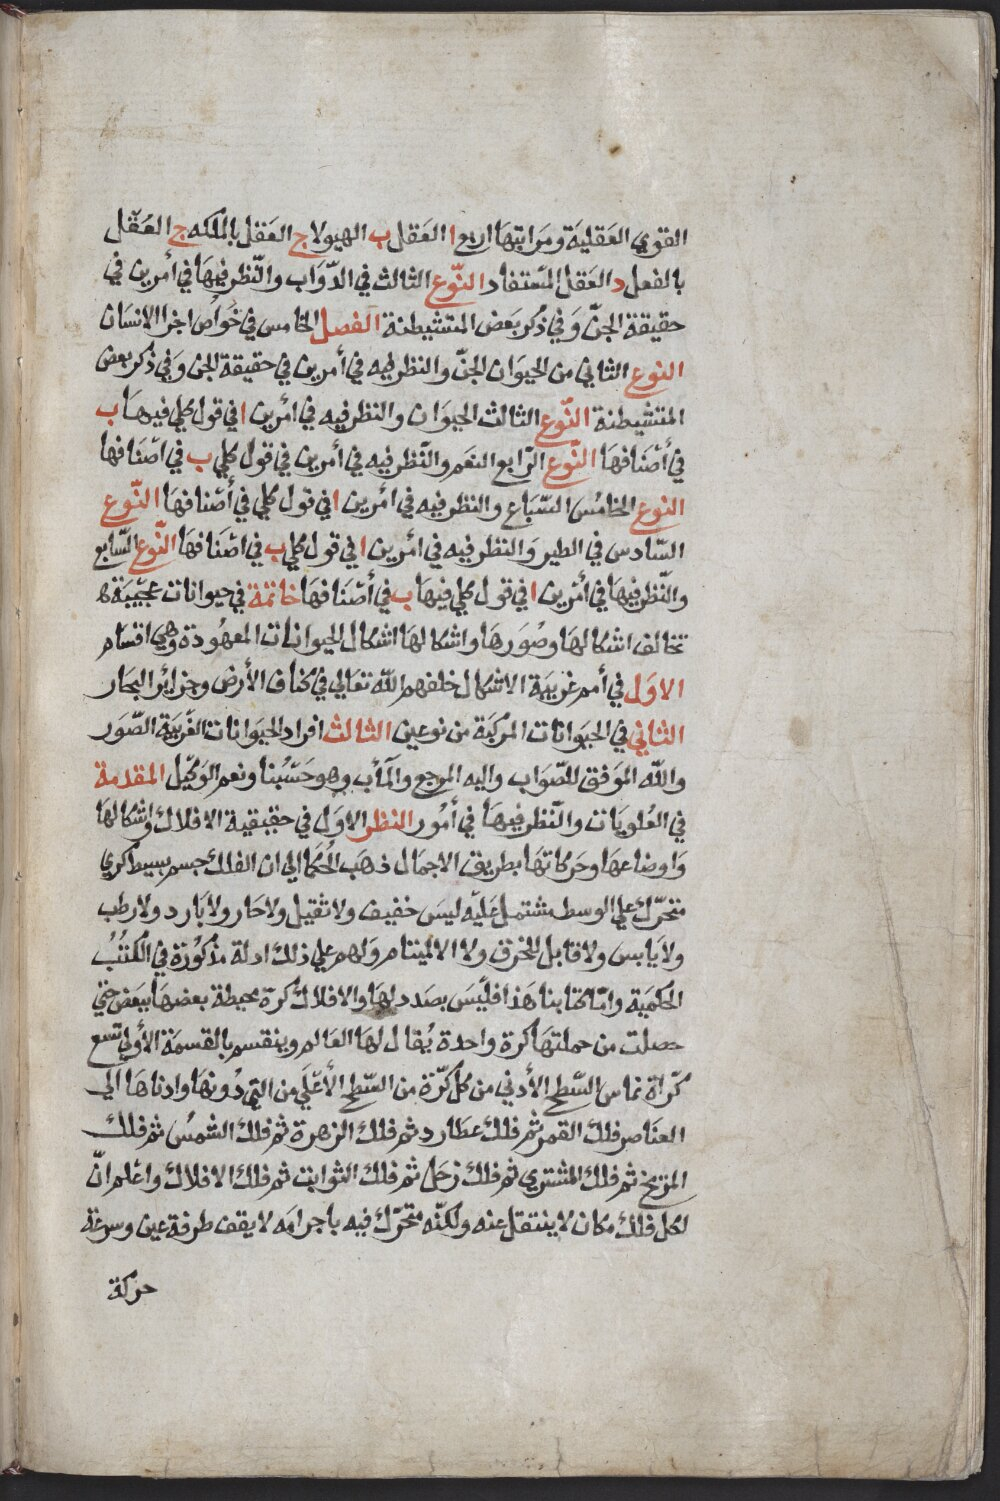 القوي العقلية ومراتبها اربع ا العقل ب الهيولا ج العقل بالملكه ج العقل
بالفعل د العقل المستفاد النوع الثالث في الدواب والنظر فيها في أمرين في
حقيقة الجن وفي ذكر بعض المتشيطنة الفصل الخامس في خواص اجزا الانسان
النوع الثاني من الحيوان الجن والنظر فيه في أمرين في حقيقة الجن وفي ذكر بعض
المتشيطنة النوع الثالث الحيوان والنظر فيه في امرين ا في قول كلي فيها ب
في أصنافها النوع الرابع النعم والنظر فيه في أمرين في قول كلي ب في اصنافها
النوع الخامس السباع والنظر فيه في امرين ا في قول كلي في أصنافها النوع
السادس في الطير والنظر فيه في امرين ا في قول كلي ب في اصنافها النوع السابع
والنظر فيها في أمرين ا في قول كلي فيها ب في أصنافها خاتمة في حيوانات عجيبة
تخالف اشكالها وصورها واشكالها اشكال الحيوانات المعهودة وهي اقسام
الاول في أمم غريبة الاشكال خلقهم الله تعالي في كناف الأرض وجزائر البحار
الثاني في الحيوانات المركبة من نوعين الثالث افراد الحيوانات الغريبة الصور
والله الموفق للصواب واليه المرجع والمآب وهو حسبنا ونعم الوكيل المقدمة
في العلويات والنظر فيها في أمور النظر الاول في حقيقية الافلاك واشكالها
واوضاعها وحركاتها بطريق الاجمال ذهب الحكما الي ان الفلك جسم بسيط كري
متحرك علي الوسط مشتمل عليه ليس خفيف ولا ثقيل ولا حار ولا بارد ولا رطب
ولا يابس ولا قابل للخرق ولا الالميتام ولهم علي ذلك ادلة مذكورة في الكتب
الحكمية وامّا كتابنا هذا فليس بصدد لها والافلاك كرة محيطة بعضها ببعض حتي
حصلت من جملتها كرة واحدة يقال لها العالم وينقسم بالقسمة الأولي تسع
كراة تماس السطح الأدني من كل كرة من السطح الأعلي من التي دونها وادناها الي
العناصر فلك القمر ثم فلك عطارد ثم فلك الزهرة ثم فلك الشمس ثم فلك
المريخ ثم فلك المشتري ثم فلك زحل ثم فلك الثوابت ثم فلك الافلاك واعلم ان
لكل فلك مكان لا ينتقل عنه ولكنه متحرك فيه باجرامه لا يقف طرفة عين وسرعة
حركة